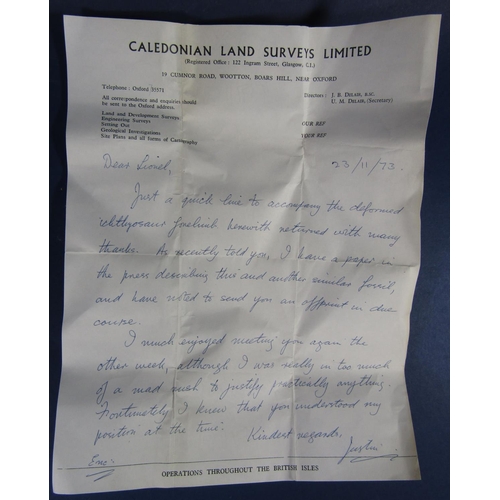 CALEDONIAN LAND SURVEYS LIMITED
(Registered Office: 122 Ingram Street, Glasgow, C.1.)
19 CUMNOR ROAD, WOOTTON, BOARS HILL, NEAR OXFORD
Telephone: Oxford 35571
All correspondence and enquiries should
be sent to the Oxford address.
Land and Development Surveys
Engineering Surveys
Setting Out
Geological Investigations
Site Plans and all forms of Cartography
Directors: J. B. Delair, B.SC.
U. M. Delair, (Secretary)
OUR REF
YOUR REF
23/11/73.
Dear Lionel,
Just a quick line to accompany the deformed
ichthyosaur forelimb herewith returned with many
thanks. As recently told you, I have a paper in
the press describing this and another similar fossil,
and have noted to send you an offprint in due
course.
I much enjoyed meeting you again the
other week, although I was really in too much
of a mad rush to justify practically anything.
Fortunately I knew that you understood my
position at the time.
Kindest regards,
Justin
Enc:
OPERATIONS THROUGHOUT THE BRITISH ISLES